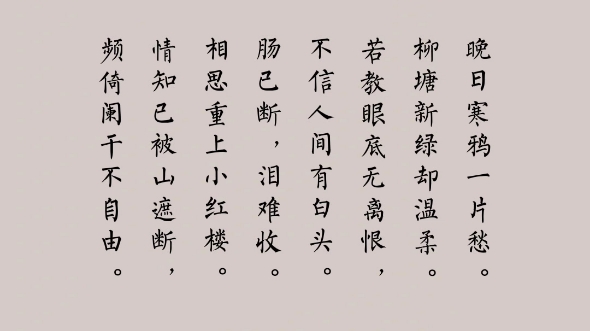 晚日寒鸦一片愁。
柳塘新绿却温柔。
若教眼底无离恨，
不信人间有白头。
肠已断，泪难收。
相思重上小红楼。
情知已被山遮断，
频倚阑干不自由。